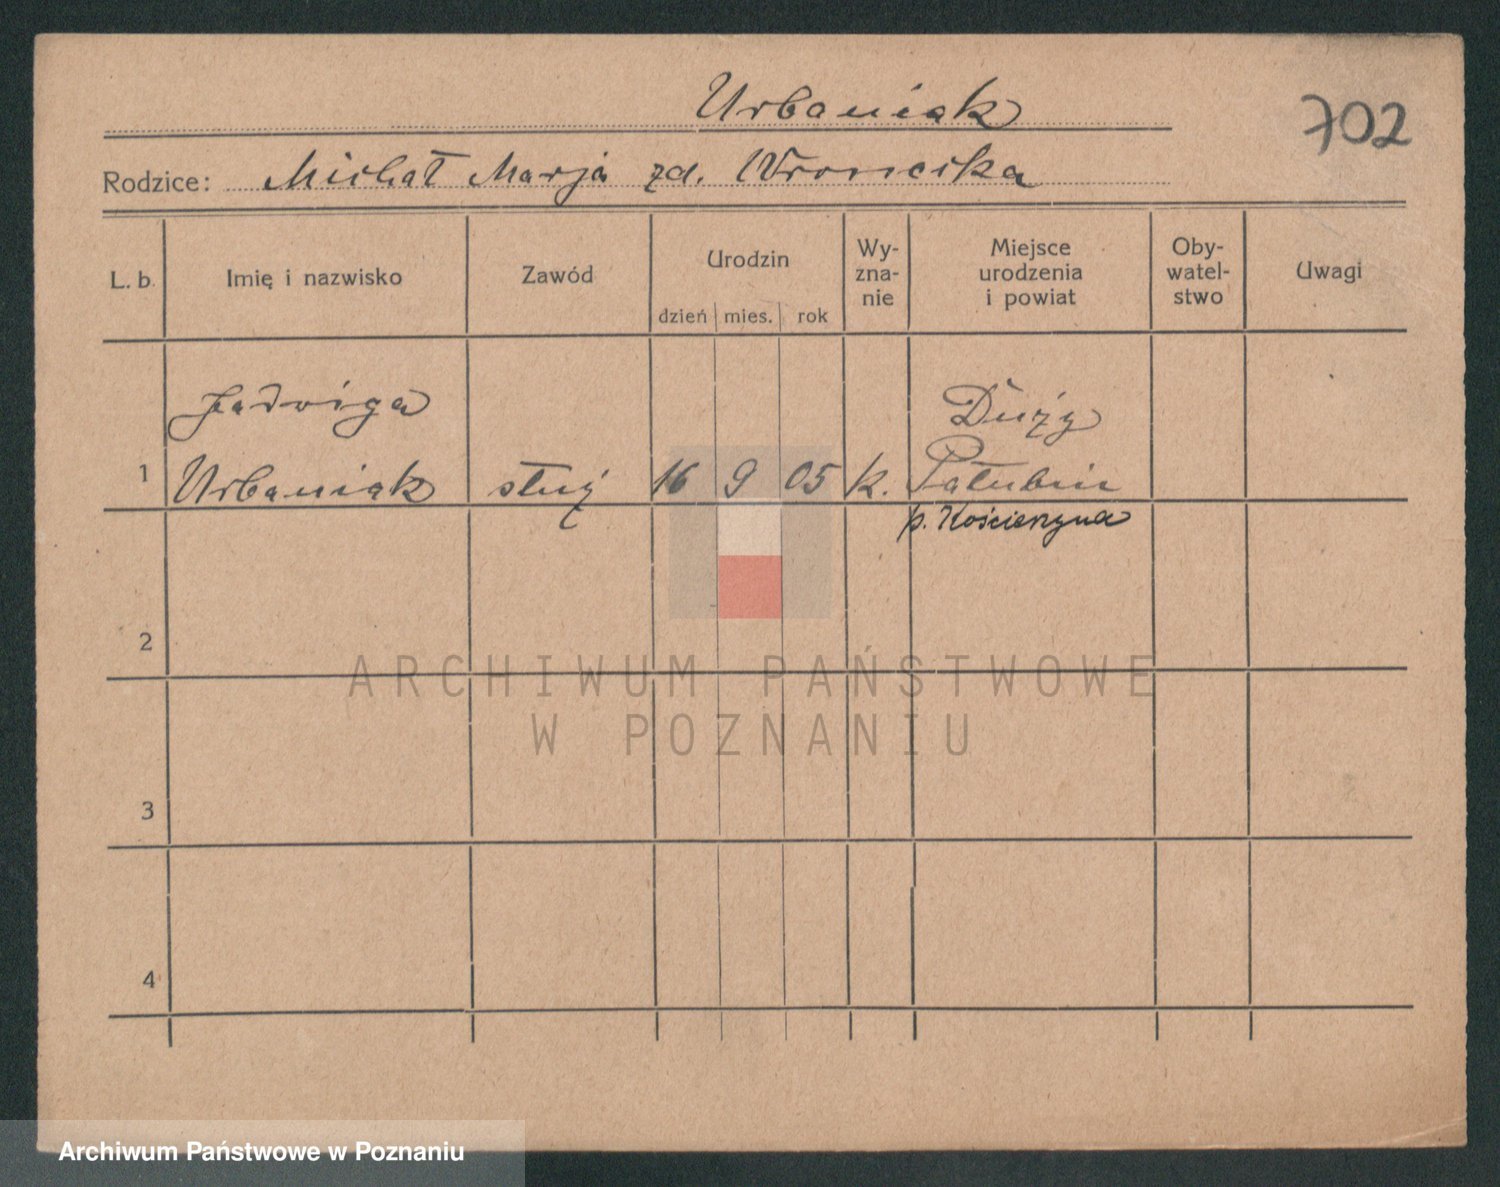 Urbaniak
702
Rodzice: Michał Marja zd. Wroncka
L. b. Imię i nazwisko Zawód Urodzin dzień mies. rok Wy-zna-nie Miejsce urodzenia i powiat Oby-watel-stwo Uwagi
Jadwiga Duży
1 Urbaniak służ 16 9 05 k. Pałubin
p. Kościerzyna
2
ARCHIWUM PAŃSTWOWE
W POZNANIU
3
4
Archiwum Państwowe w Poznaniu